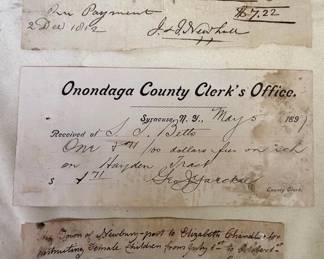 Payment $7.22
2 Dec 1812 J. & J. Newhall
Onondaga County Clerk's Office.
Syracuse, N. Y., May 5 189
Received of S. J. Betts
One & 71/100 dollars fees on
on Hayden Tract
$ 1 71 Geo.
County Clerk.
Town of Newbury-port to Elizabeth Chandler for
instructing Female Children from July 1st to October 1st